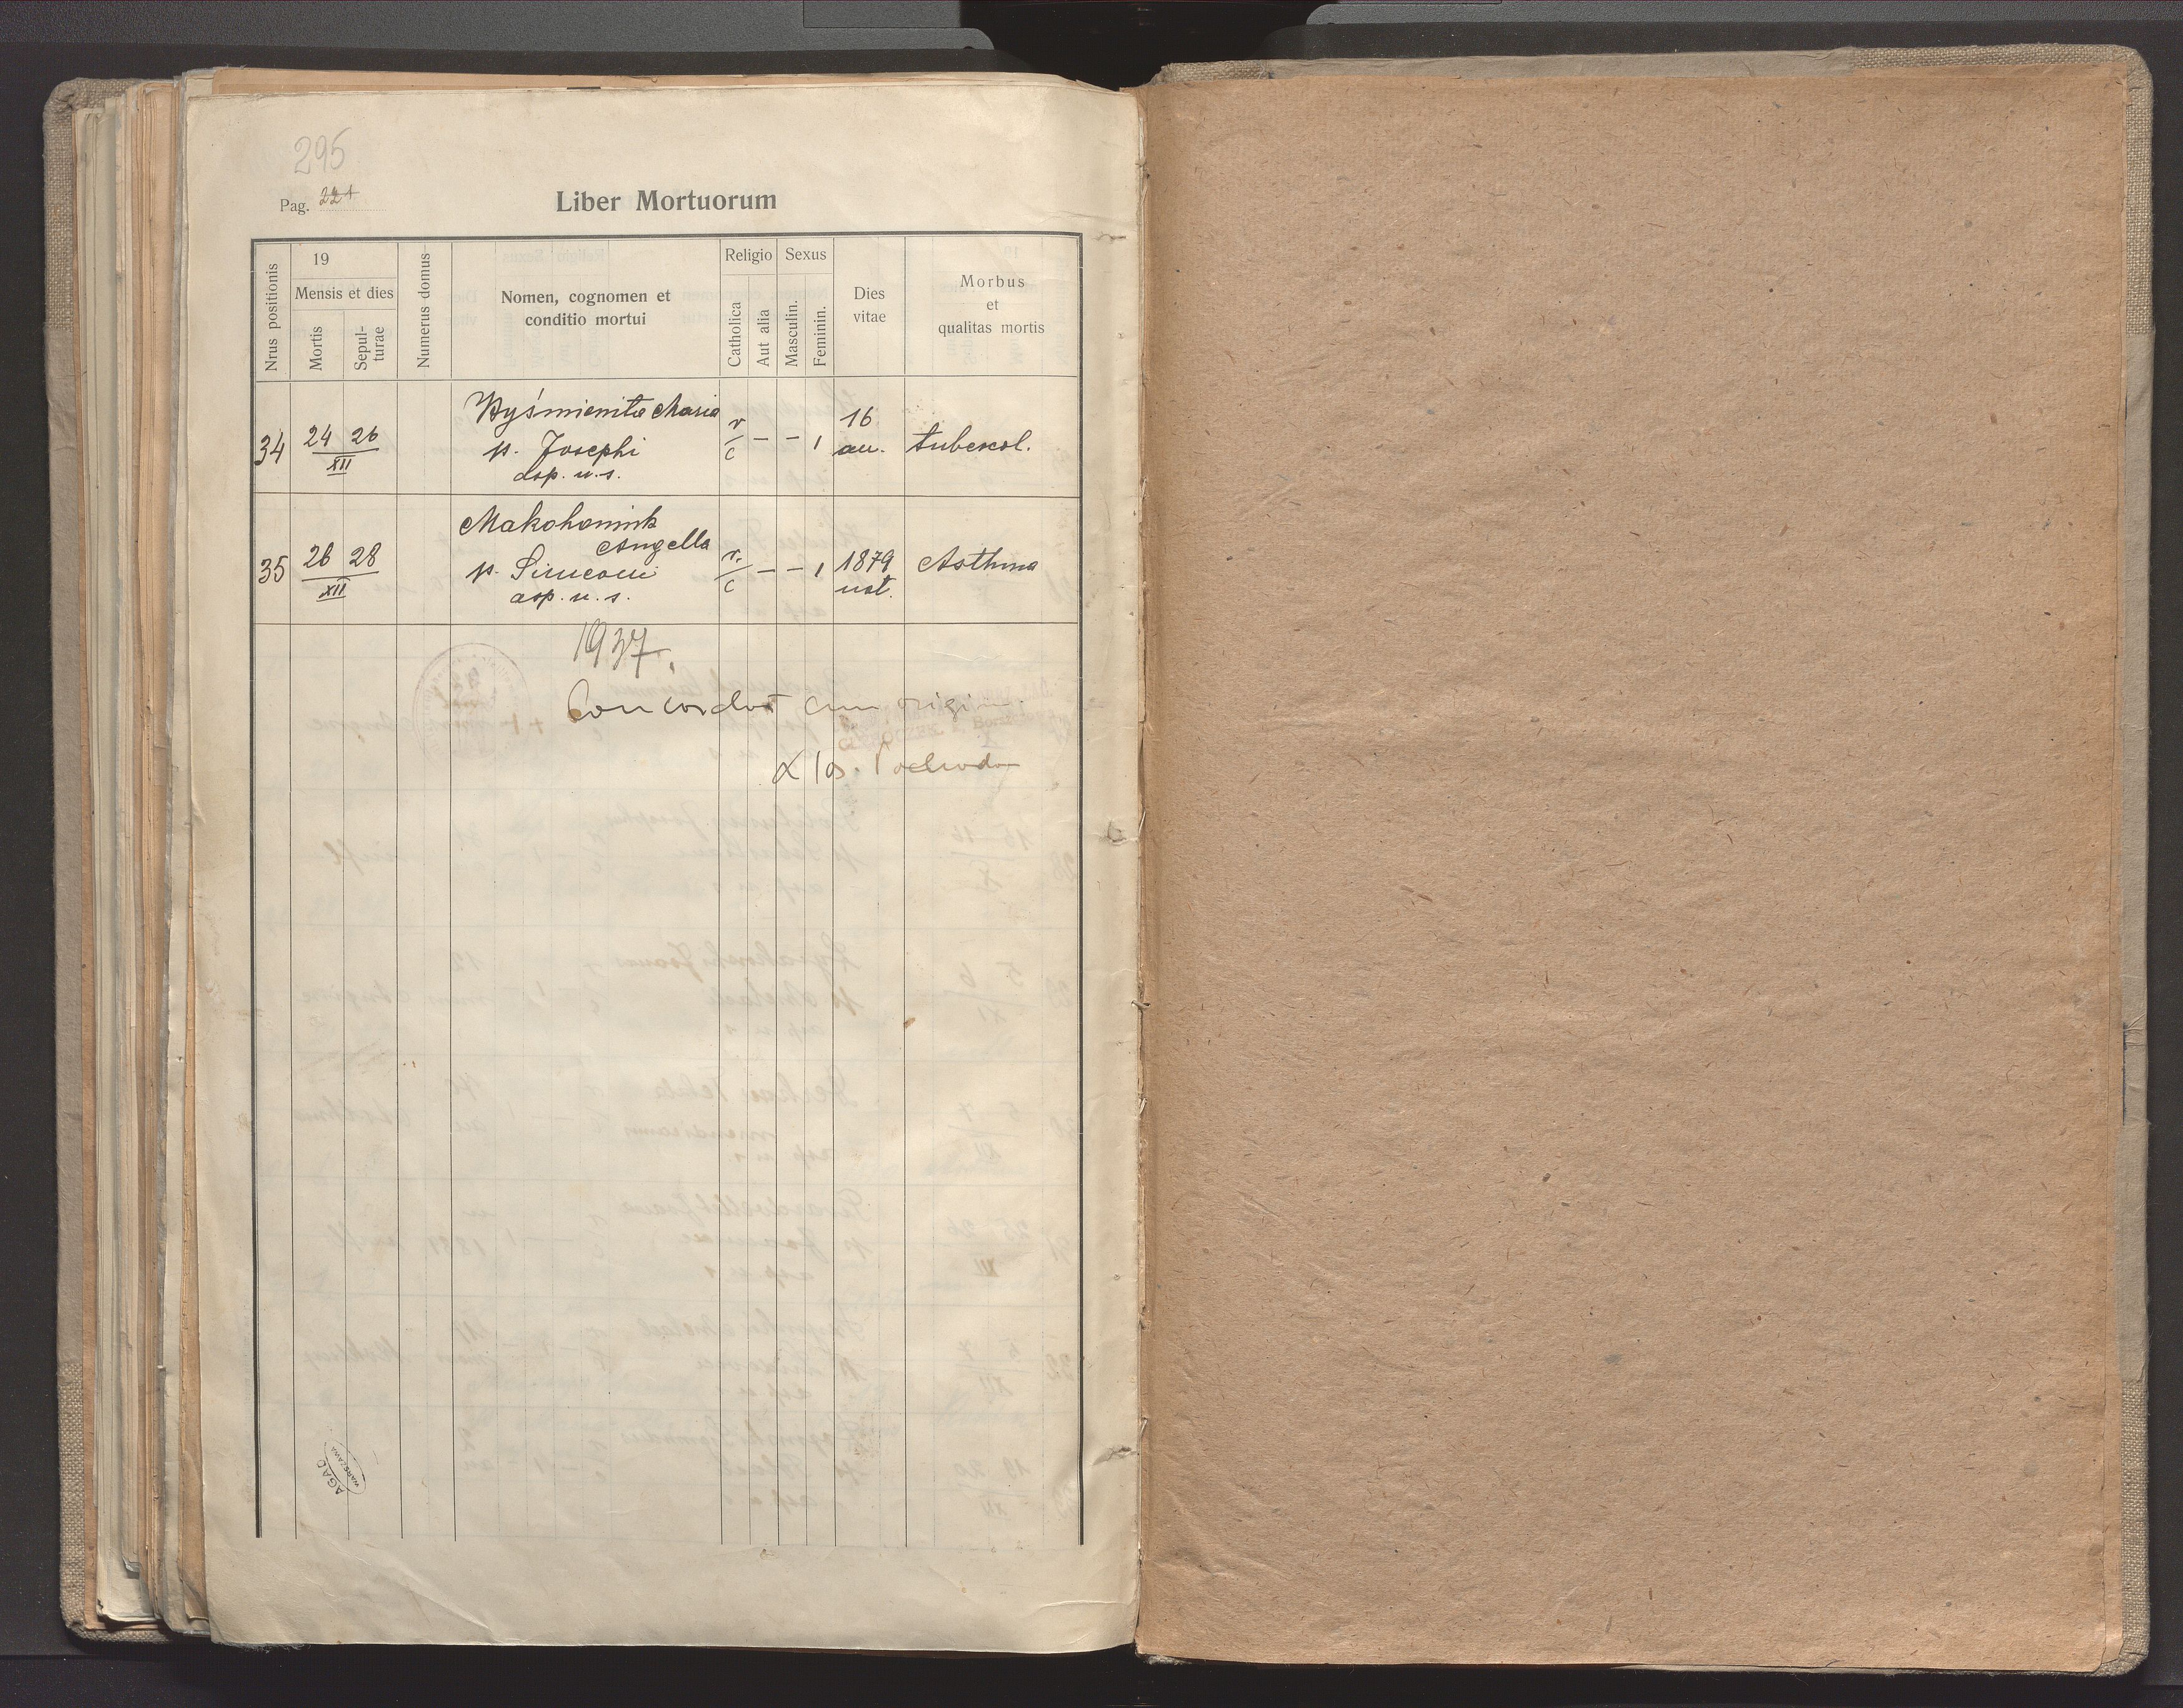 295
Pag. 221
Liber Mortuorum
Nrus positionis
19
Mensis et dies
Mortis
Sepul-
turae
Numerus domus
Nomen, cognomen et
conditio mortui
Religio
Catholica
Aut alia
Sexus
Masculin.
Feminin.
Dies
vitae
Morbus
et
qualitas mortis
34 24 26 XII
Wyśmienita Maria
p. Josephi
asp. u. s.
r/c – – 1
16
an.
tubercol.
35 26 28 XII
Makohoniuk
Angella
p. Simeoni
asp. u. s.
r./c – – 1
1879
nat.
Asthma
1937.
Concordat cum origin.
AGAD
WARSZAWA